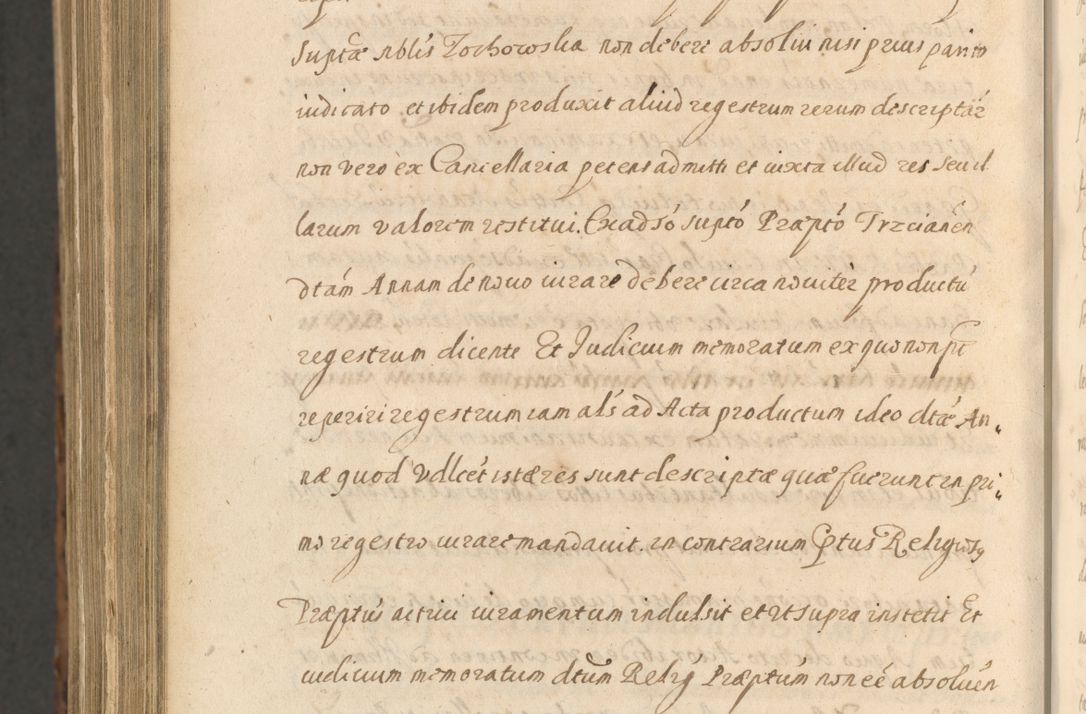 suptæ nblis Zochorowska non debere absolui nisi prius parito
iudicato et ibidem produxit aliud regestrum rerum descriptar
non vero ex Cancellaria petens admitti et iuxta illud res seu il
larum valorem restitui. Ex adso supto Præpto Trzcianen
dtam Annam de nouo iurare debere circa nouiter productu
regestrum dicente Et Judicium memoratum ex quo non pt
reperiri regestrum iam als ad Acta productum ideo dtæ An„
næ quod vdlcet istæ res sunt descriptæ quæ fuerunt in pri„
mo regestro iurare mandauit. in contrarium Ptus Religiosq
Præptus actrici iuramentum indulsit et ut supra institit Et
iudicium memoratum dtum Relig Præptum non eé absoluen